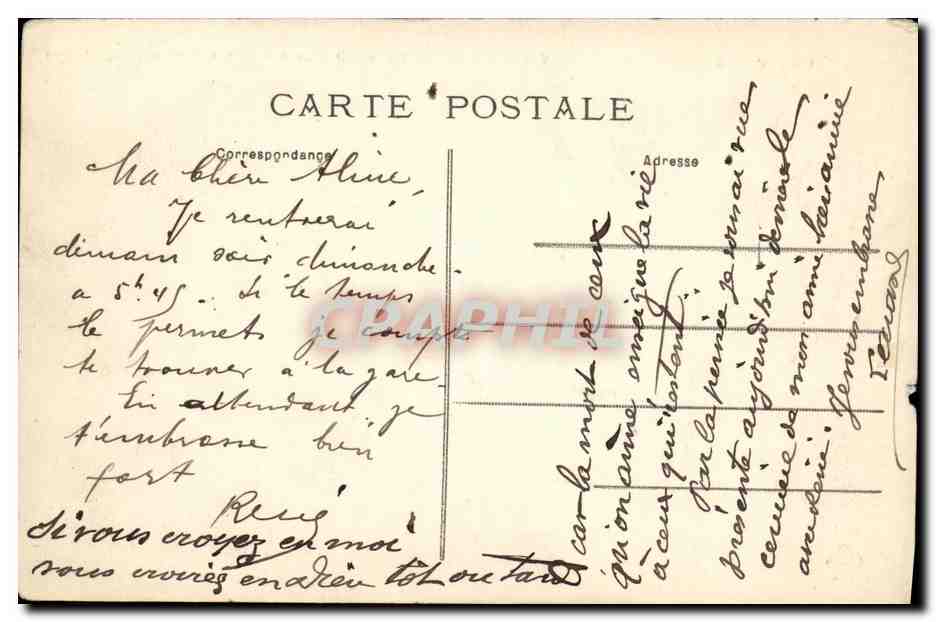 CARTE POSTALE
Correspondance
Adresse
Ma Chère Aline,
Je rentrerai
demain soir dimanche
a 5h.45. Si le temps
le permets je compte
te trouver à la gare
En attendant je
t'embrasse bien
fort
René
Si vous croyez en moi
vous croirez en Dieu tôt ou tard
car la mort de ceux
qu'on aime ainsi que la vie
à ceux qui restent
Par la pensée je vous ai vue
présente aujourd'hui
comme de mon amie
Je vous embrasse
CPAPHIL